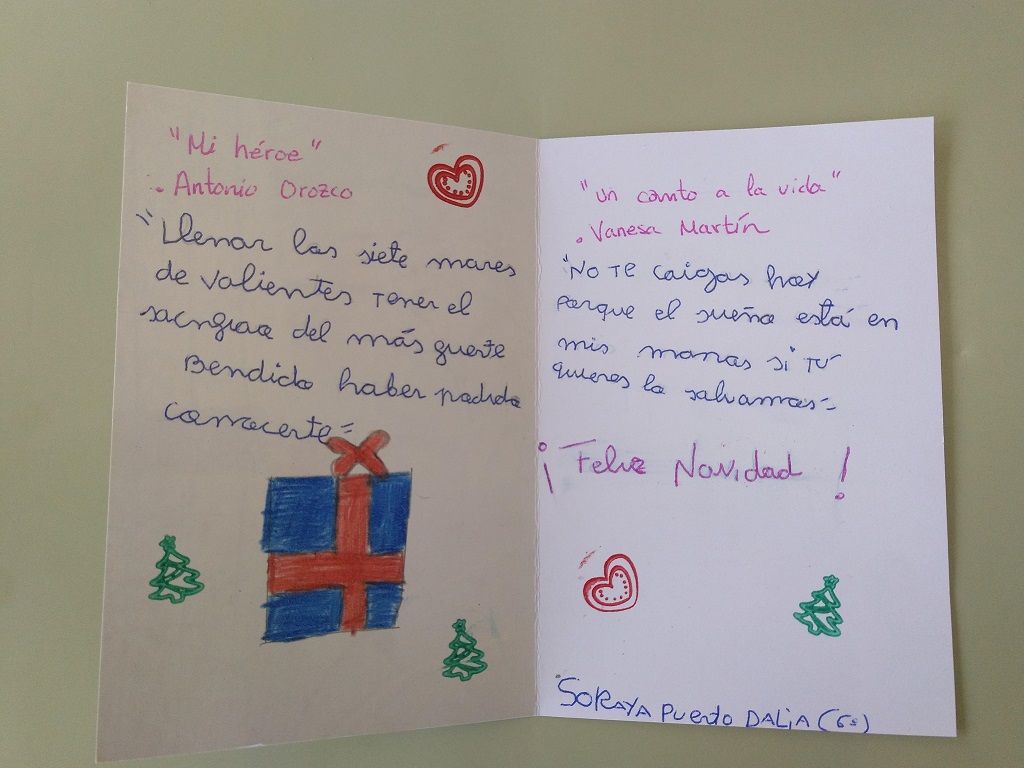 "Mi héroe"
. Antonio Orozco
"Llenar las siete mares
de valientes Tener el
sacrigicio del más guerte
Bendido haber podido
conocerte"
"un canto a la vida"
. Vanesa Martín
"No Te caigas hoy
porque el sueño está en
mis manos si TÚ
quieres lo salvamos"
¡Feliz Navidad!
SORAYA Puerto DALIA (6º)